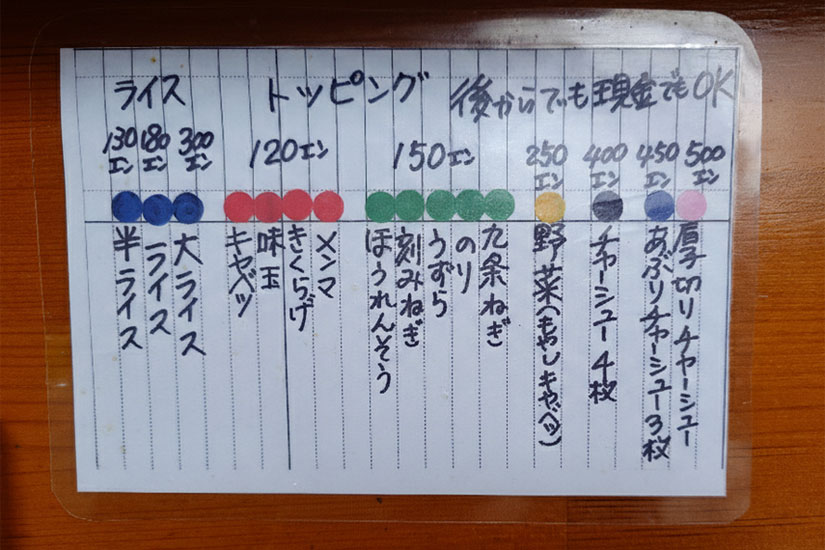 ライス トッピング 後からでも現金でもOK
130エン 180エン 300エン 120エン 150エン 250エン 400エン 450エン 500エン
半ライス
ライス
大ライス
キャベツ
味玉
きくらげ
メンマ
ほうれんそう
刻みねぎ
うずら
のり
九条ねぎ
野菜(もやしキャベツ)
チャーシュー4枚
あぶりチャーシュー3枚
厚切りチャーシュー